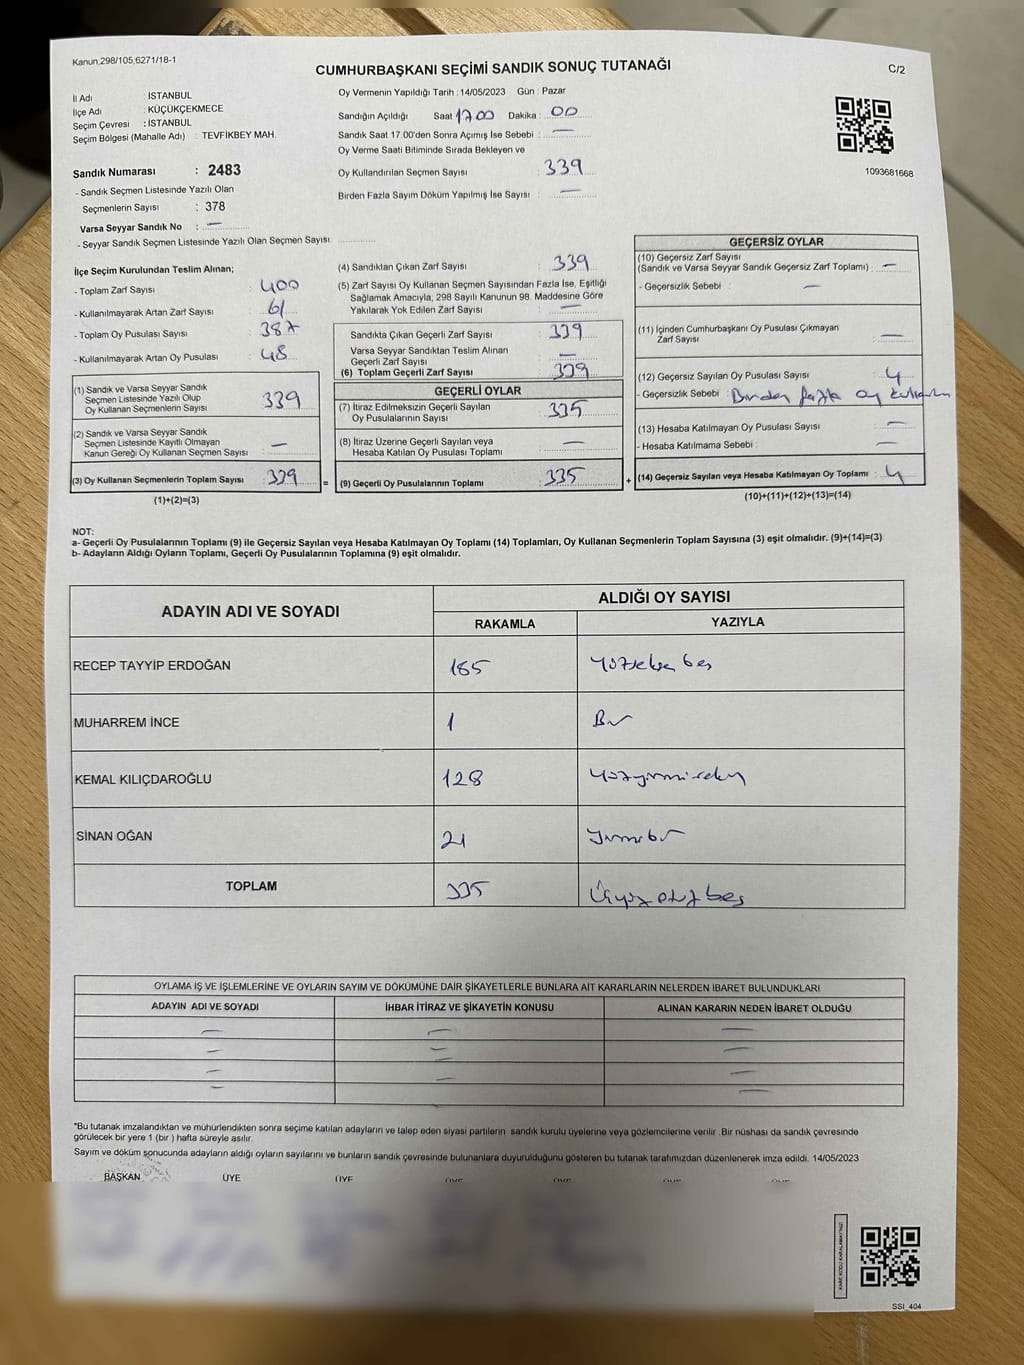 Kanun,298/105,6271/18-1
CUMHURBAŞKANI SEÇİMİ SANDIK SONUÇ TUTANAĞI
C/2
İl Adı : İSTANBUL
İlçe Adı : KÜÇÜKÇEKMECE
Seçim Çevresi : İSTANBUL
Seçim Bölgesi (Mahalle Adı) : TEVFİKBEY MAH.
Sandık Numarası : 2483
- Sandık Seçmen Listesinde Yazılı Olan
Seçmenlerin Sayısı : 378
Varsa Seyyar Sandık No : —
- Seyyar Sandık Seçmen Listesinde Yazılı Olan Seçmen Sayısı:
Oy Vermenin Yapıldığı Tarih : 14/05/2023 Gün : Pazar
Sandığın Açıldığı Saat 17.00 Dakika : 00
Sandık Saat 17.00'den Sonra Açımış İse Sebebi : —
Oy Verme Saati Bitiminde Sırada Bekleyen ve
Oy Kullandırılan Seçmen Sayısı : 339
Birden Fazla Sayım Döküm Yapılmış İse Sayısı : —
1093681668
İlçe Seçim Kurulundan Teslim Alınan;
- Toplam Zarf Sayısı : 400
- Kullanılmayarak Artan Zarf Sayısı : 61
- Toplam Oy Pusulası Sayısı : 387
- Kullanılmayarak Artan Oy Pusulası : 48
(1) Sandık ve Varsa Seyyar Sandık
Seçmen Listesinde Yazılı Olup
Oy Kullanan Seçmenlerin Sayısı : 339
(2) Sandık ve Varsa Seyyar Sandık
Seçmen Listesinde Kayıtlı Olmayan
Kanun Gereği Oy Kullanan Seçmen Sayısı : —
(3) Oy Kullanan Seçmenlerin Toplam Sayısı : 339
(1)+(2)=(3)
(4) Sandıktan Çıkan Zarf Sayısı : 339
(5) Zarf Sayısı Oy Kullanan Seçmen Sayısından Fazla İse, Eşitliği
Sağlamak Amacıyla; 298 Sayılı Kanunun 98. Maddesine Göre
Yakılarak Yok Edilen Zarf Sayısı : —
Sandıkta Çıkan Geçerli Zarf Sayısı : 339
Varsa Seyyar Sandıktan Teslim Alınan
Geçerli Zarf Sayısı : —
(6) Toplam Geçerli Zarf Sayısı : 339
GEÇERLİ OYLAR
(7) İtiraz Edilmeksizin Geçerli Sayılan
Oy Pusulalarının Sayısı : 335
(8) İtiraz Üzerine Geçerli Sayılan veya
Hesaba Katılan Oy Pusulası Toplamı : —
= (9) Geçerli Oy Pusulalarının Toplamı : 335
GEÇERSİZ OYLAR
(10) Geçersiz Zarf Sayısı
(Sandık ve Varsa Seyyar Sandık Geçersiz Zarf Toplamı) : —
- Geçersizlik Sebebi : —
(11) İçinden Cumhurbaşkanı Oy Pusulası Çıkmayan
Zarf Sayısı : —
(12) Geçersiz Sayılan Oy Pusulası Sayısı : 4
- Geçersizlik Sebebi : Birden fazla oy kullanım
(13) Hesaba Katılmayan Oy Pusulası Sayısı : —
- Hesaba Katılmama Sebebi : —
+ (14) Geçersiz Sayılan veya Hesaba Katılmayan Oy Toplamı : 4
(10)+(11)+(12)+(13)=(14)
NOT:
a- Geçerli Oy Pusulalarının Toplamı (9) ile Geçersiz Sayılan veya Hesaba Katılmayan Oy Toplamı (14) Toplamları, Oy Kullanan Seçmenlerin Toplam Sayısına (3) eşit olmalıdır. (9)+(14)=(3)
b- Adayların Aldığı Oyların Toplamı, Geçerli Oy Pusulalarının Toplamına (9) eşit olmalıdır.
ADAYIN ADI VE SOYADI ALDIĞI OY SAYISI
RAKAMLA YAZIYLA
RECEP TAYYİP ERDOĞAN 185 Yüzseksen beş
MUHARREM İNCE 1 Bir
KEMAL KILIÇDAROĞLU 128 Yüzyirmisekiz
SİNAN OĞAN 21 Yirmibir
TOPLAM 335 Üçyüz otuz beş
OYLAMA İŞ VE İŞLEMLERİNE VE OYLARIN SAYIM VE DÖKÜMÜNE DAİR ŞİKAYETLERLE BUNLARA AİT KARARLARIN NELERDEN İBARET BULUNDUKLARI
ADAYIN ADI VE SOYADI İHBAR İTİRAZ VE ŞİKAYETİN KONUSU ALINAN KARARIN NEDEN İBARET OLDUĞU
— — —
— — —
— — —
— —
*Bu tutanak imzalandıktan ve mühürlendikten sonra seçime katılan adayların ve talep eden siyasi partilerin sandık kurulu üyelerine veya gözlemcilerine verilir .Bir nüshası da sandık çevresinde
görülecek bir yere 1 (bir ) hafta süreyle asılır.
Sayım ve döküm sonucunda adayların aldığı oyların sayılarını ve bunların sandık çevresinde bulunanlara duyurulduğunu gösteren bu tutanak tarafımızdan düzenlenerek imza edildi. 14/05/2023
BAŞKAN ÜYE ÜYE ÜYE ÜYE ÜYE ÜYE
KARE KODU KARALAMAYINIZ!
SSI_404